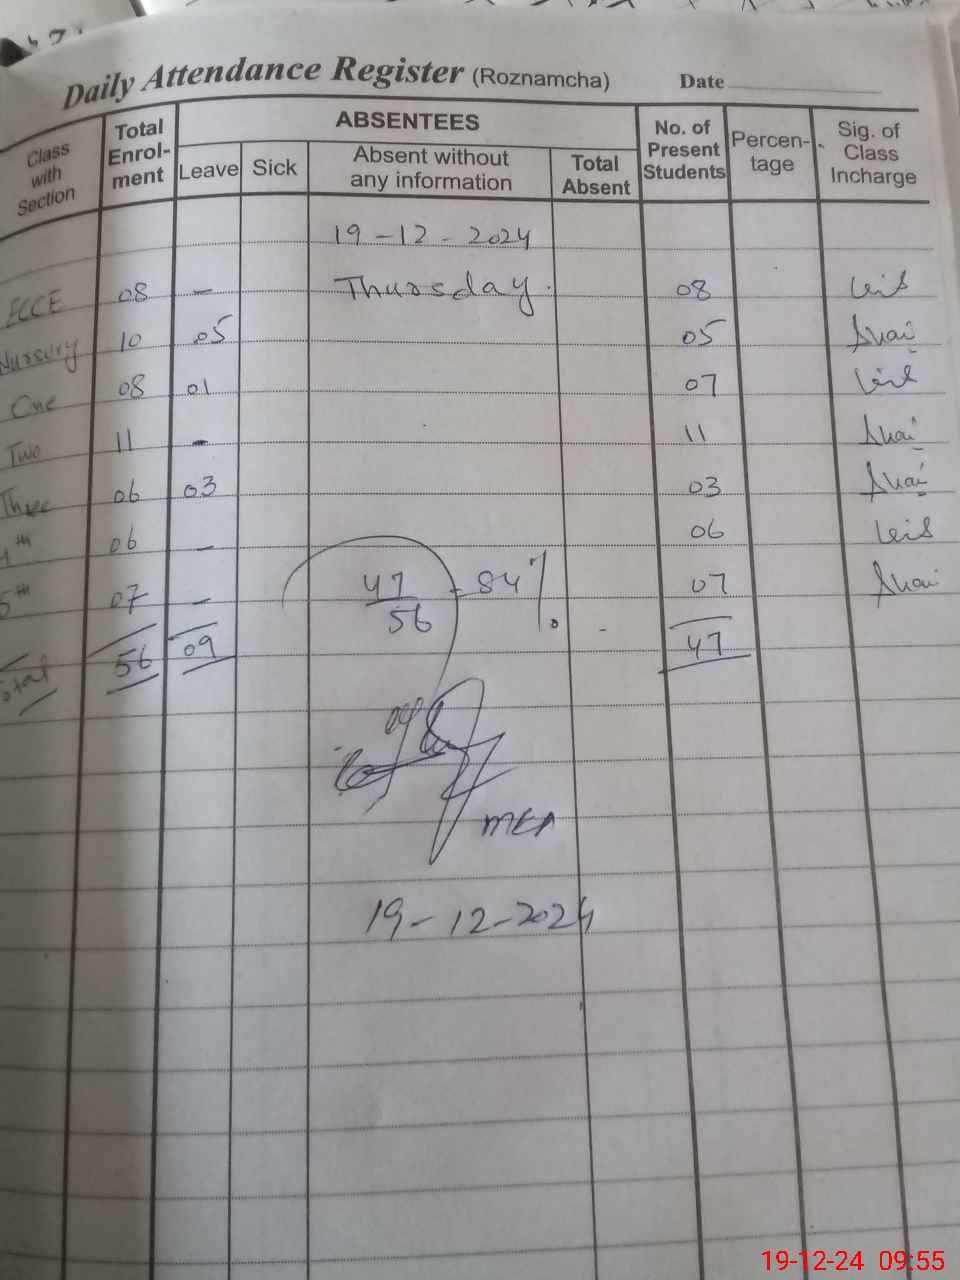 Daily Attendance Register (Roznamcha) Date
Class with Section
Total Enrol-ment
ABSENTEES
Leave
Sick
Absent without any information
Total Absent
No. of Present Students
Percen-tage
Sig. of Class Incharge
19-12-2024
ECCE 08 - Thursday. 08
Nursury 10 05 05
One 08 01 07
Two 11 - 11
Three 06 03 03
4th 06 - 06
5th 07 - 47/56 = 84% 07
Total 56 09 47
MEA
19-12-2024
19-12-24 09:55